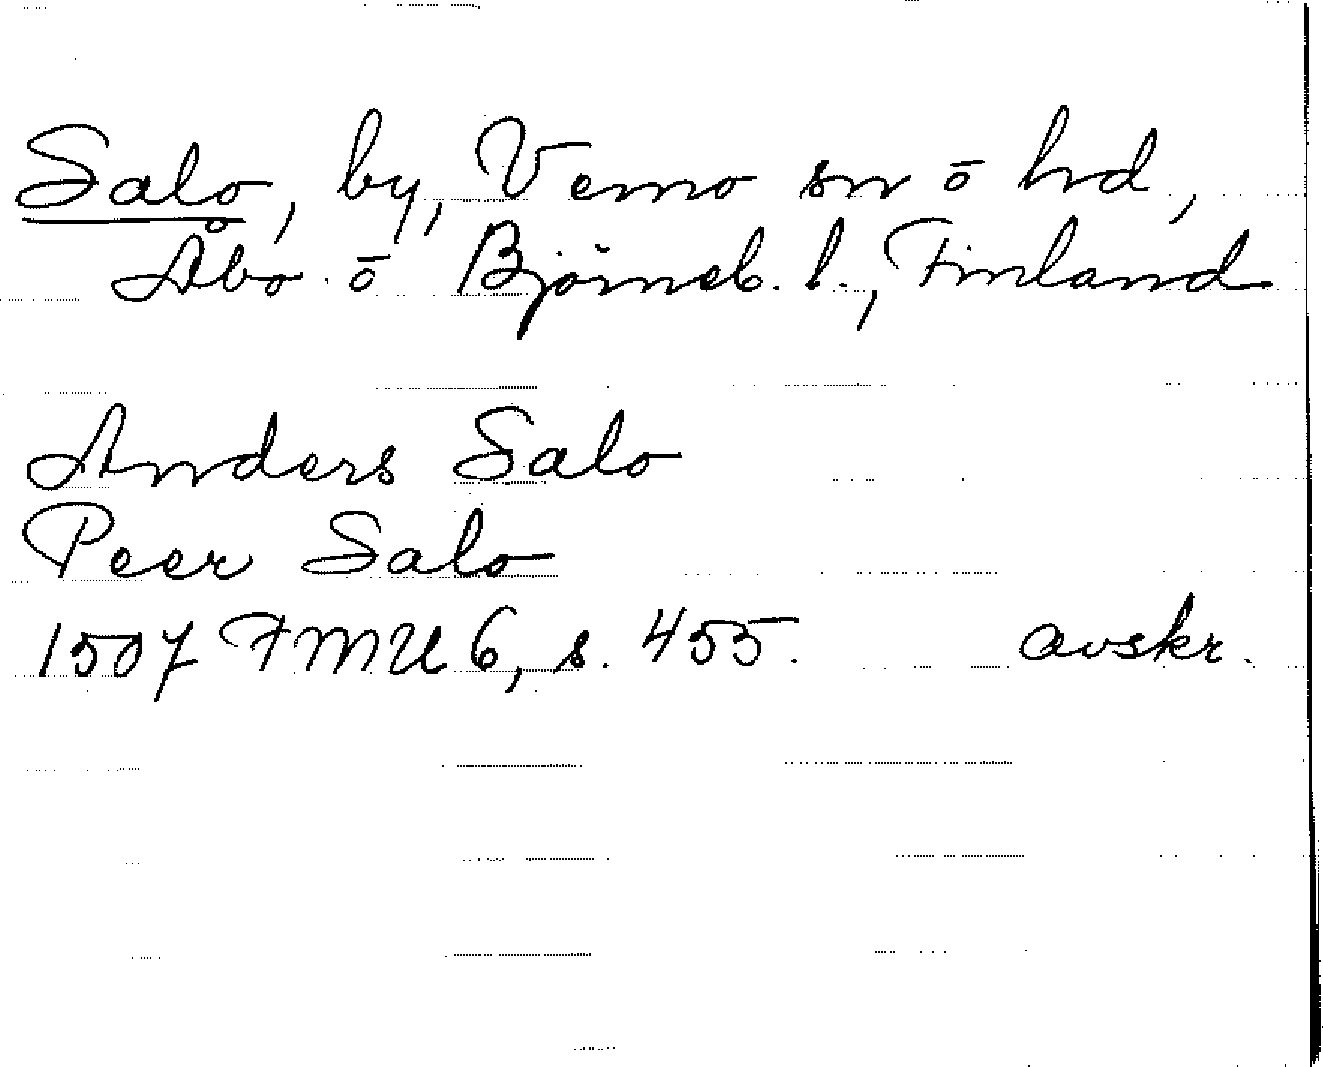 Salo, by, Vemo sn ō hd,
Åbo. ō Björneb. l., Finland
Anders Salo
Peer Salo
1507 FMU 6, s. 455. avskr.